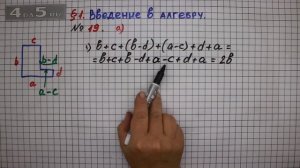 §1. Введение в алгебру.
№ 19. а)
c
b
b-d
d
a
a-c
1) b+c+(b-d)+(a-c)+d+a=
=b+c+b-d+a-c+d+a=2b